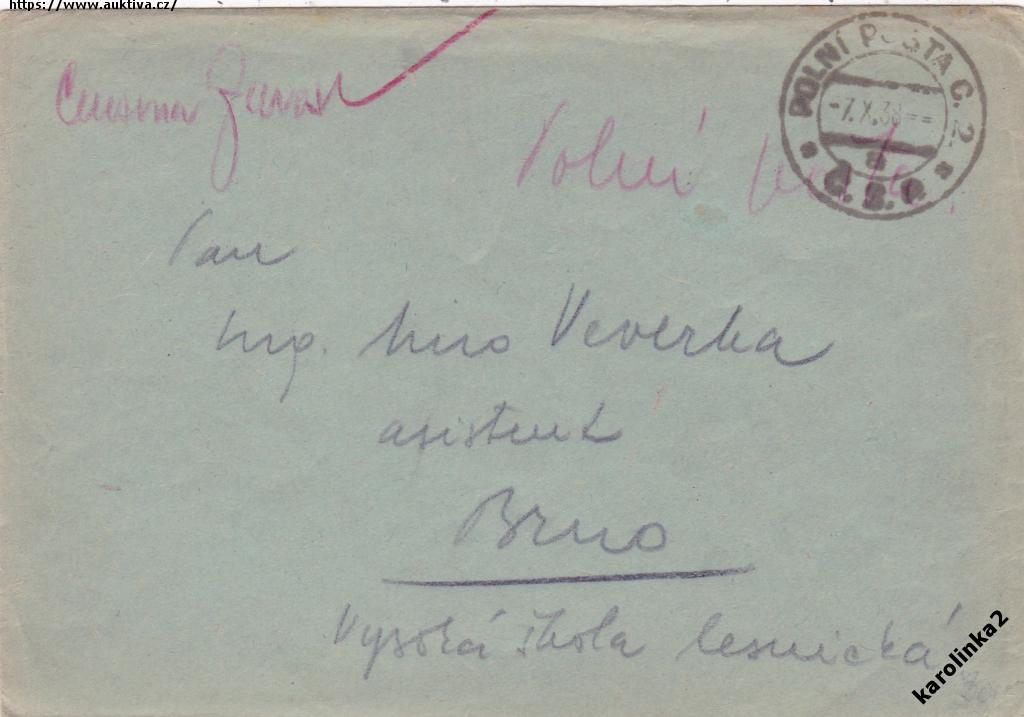 https://www.auktiva.cz/
POLNÍ POŠTA Č. 2.
-7.X.38==
a
Č.S.P.
Polní pošta.
Pan
Ing. Miro Veverka
asistent
Brno
Vysoká škola lesnická
karolinka2